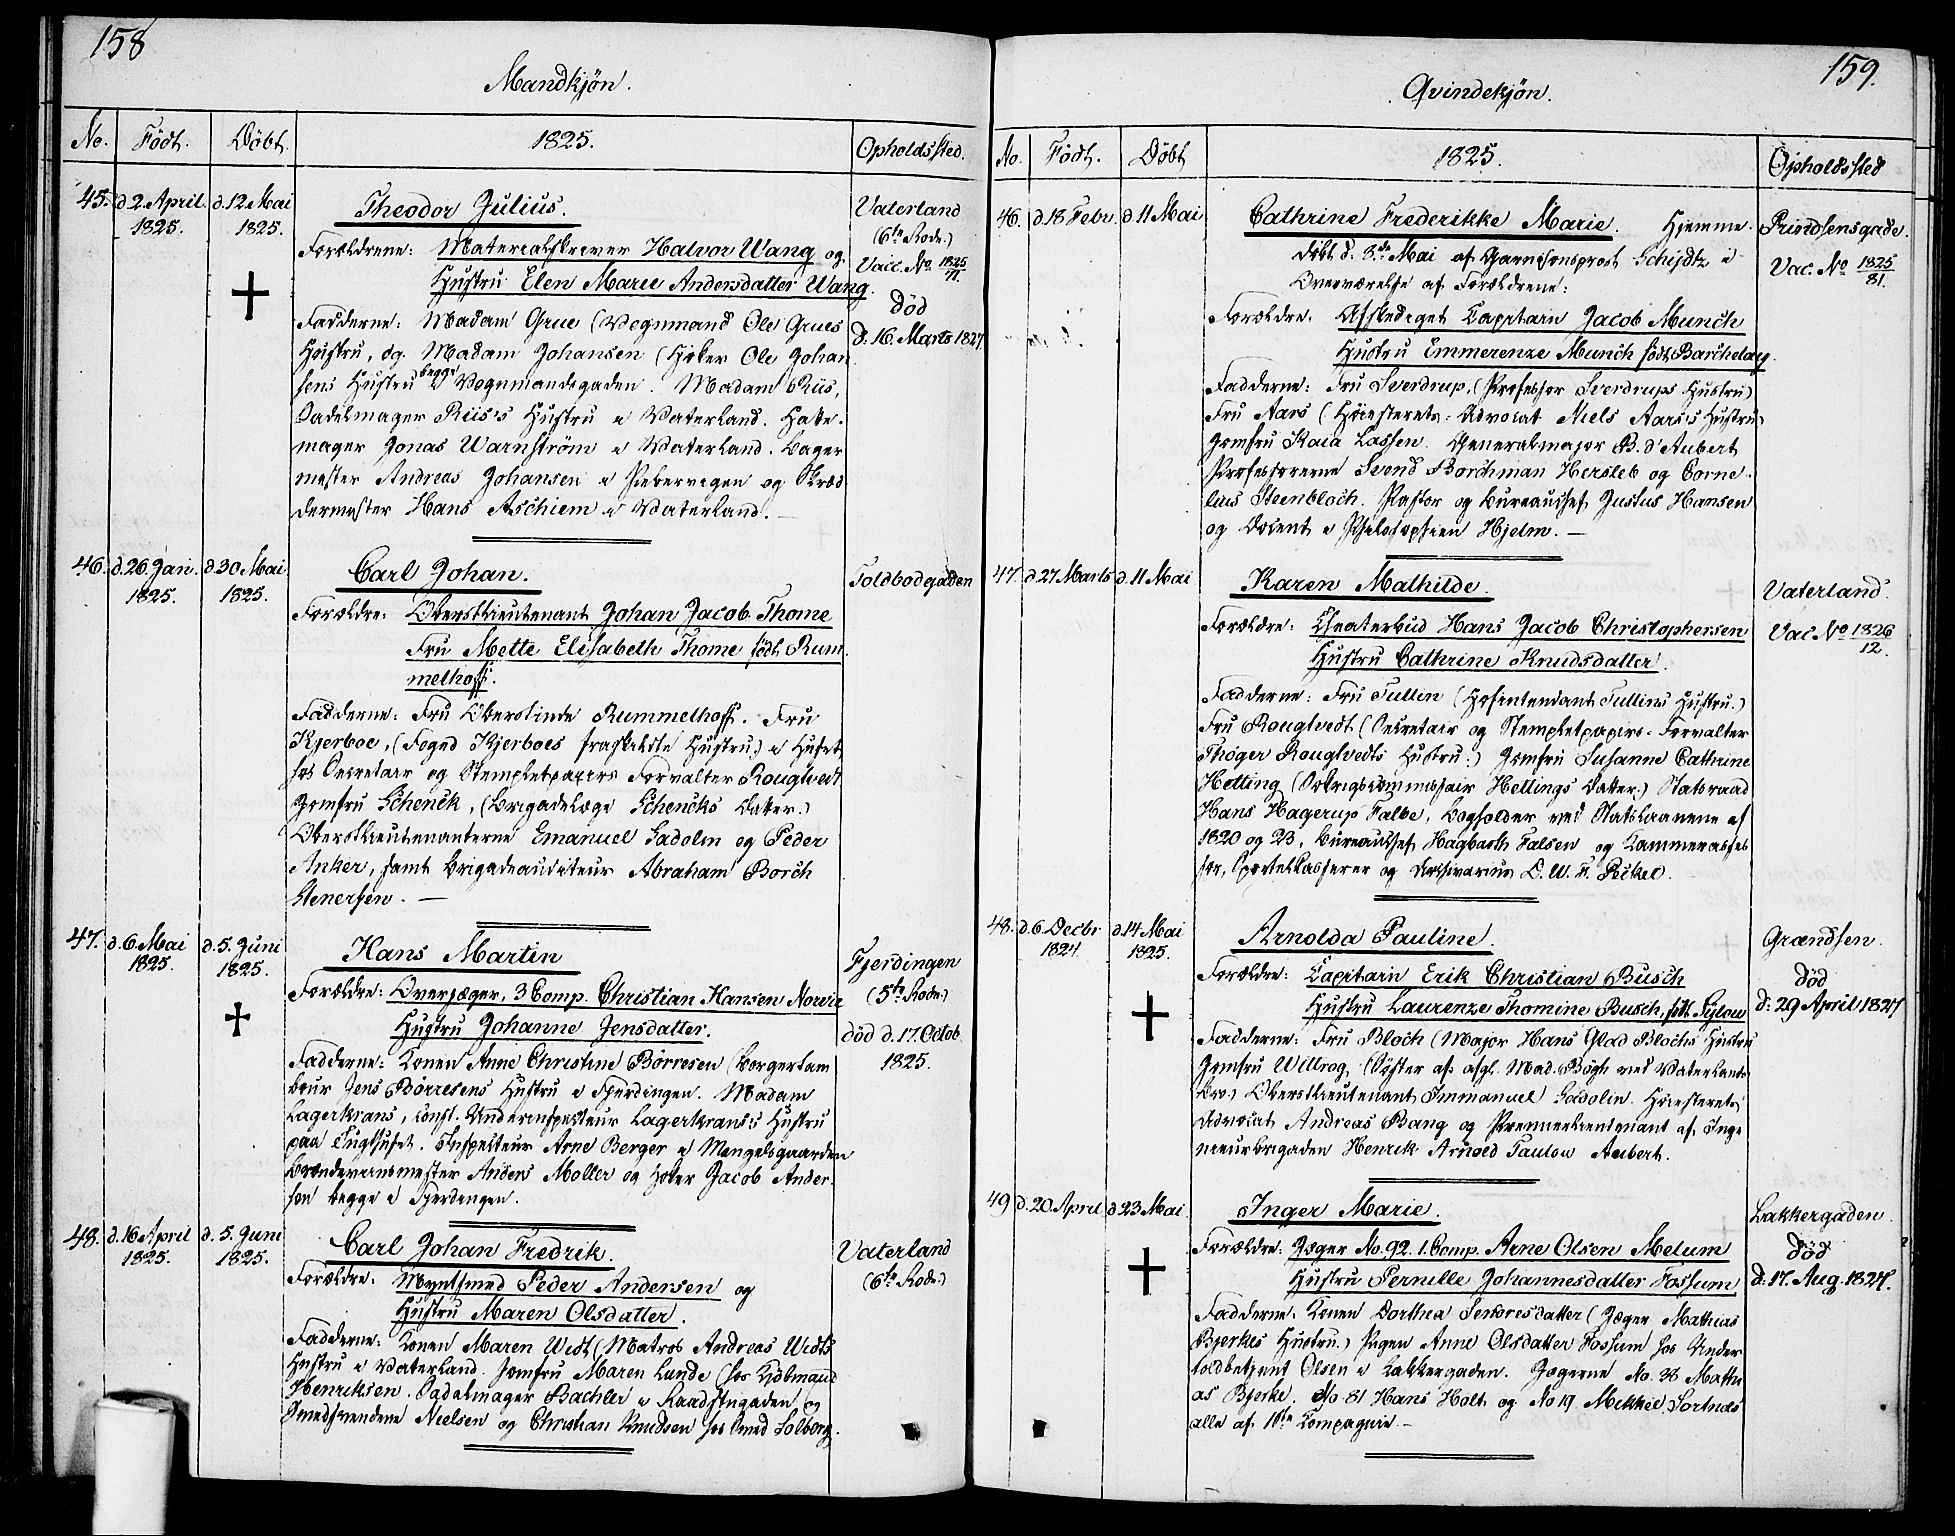 158
Mandkjøn.
No. Födt. Döbt. 1825. Opholdssted.
45. d. 2. April 1825. d. 12 Mai 1825.
Theodor Julius.
Forældrene: Materialskriver Halvor Wang og
Hustru Elen Marie Andersdatter Wang.
Fadderne: Madam Grue (Vognmand Ole Grues
Hustru, og Madam Johansen (Höker Ole Johan
sens Hustru begge i Vognmandsgaden. Madam Riis,
Sadelmager Riis's Hustru i Vaterland. Hatte-
mager Jonas Warnström i Vaterland. Bager
mester Andreas Johansen i Pibervigen og Skræd
dermester Hans Aschiem i Vaterland. —
Vaterland
(6te Rode.)
Vacc. No 1825/71.
Död
d. 16. Marts 1827.
46. d. 26. Jan. 1825. d. 30 Mai 1825.
Carl Johan.
Forældre: Oberstlieutenant Johan Jacob Thome
Fru Mette Elisabeth Thome födt Rum
melhoff.
Fadderne: Fru Oberstinde Rummelhoff. Fru
Kjerboe, (Foged Kjerboes fraskildte Hustru) i Huset
hos Secretair og Stempletpapirs Forvalter Rougtvedt
Jomfru Schenck, (Brigadelæge Schencks Datter.)
Oberstlieutenanterne Emanuel Gadolin og Peder
Anker, samt Brigadeauditeur Abraham Borch
Stenersen. —
Toldbodgaden
47. d. 6. Mai 1825. d. 5. Juni 1825.
Hans Martin
Forældre: Overjæger, 3 Comp. Christian Hansen
Hustru Johanne Jensdatter.
Fadderne: Konen Anne Christine Börresen (Borgertam
bour Jens Börresens Hustru i Fjerdingen. Madam
Lagerkrans, Const. Underinspecteur Lagerkrans's Hustru
paa Tugthuset. Inspecteur Arne Berger i Mangelsgaarden
Brændeviinsmester Anders Moller og Höker Jacob Ander-
sen begge i Fjerdingen.
Fjerdingen
(5te Rode.)
död d. 17. Octob
1825.
48. d. 16 April 1825. d. 5. Juni 1825.
Carl Johan Fredrik.
Forældre: Myntsmed Peder Andersen og
Hustru Maren Olsdatter.
Fadderne: Konen Maren Wedt (Matros Andreas Wedts
Hustru i Vaterland. Jomfru Maren Lunde (hos Kjöbmand
Henriksen. Sadelmager Bachler i Raadhusgaden og
Smedsvendene Nielsen og Christian Knudsen hos Smed Solberg.
Vaterland
(6te Rode.)
159.
Qvindekjön.
No. Födt. Döbt 1825. Opholdssted
46. d. 18 Febr. d 11 Mai
Cathrine Frederikke Marie. Hjemme-
döbt d. 3de Mai af Garnisonsprost Schijötz i
Overværelse af Forældrene:
Forældre: Afskediget Capitain Jacob Munch
Hustru Emmerenze Munch födt Barchelay.
Fadderne: Fru Sverdrup, (Professor Sverdrups Hustru)
Fru Aars (Höiesterets-Advocat Niels Aars's Hustru)
Jomfru Kaia Lassen. Generalmajor B. d'Aubert
Professorerne Svend Borchman Hersleb og Corne-
lius Steenbloch. Pastor og Bureauchef Justus Hansen
og Docent i Philosophien Hjelm. —
Prindsensgade.
Vac. No 1825/81.
47. d. 27 Marts d. 11 Mai
Karen Mathilde.
Forældre: Theaterbud Hans Jacob Christophersen
Hustru Cathrine Knudsdatter.
Fadderne: Fru Tullin (Hofintendant Tullins Hustru.)
Fru Rougtvedt (Secretair og Stempletpapirs-Forvalter
Thöger Rougtvedts Hustru.) Jomfru Susanne Cathrine
Hetting (Overkrigscommissair Hettings Datter.) Statsraad
Hans Hagerup Falbe, Bogholder ved Statslaanene af
1820 og 23, Bureauchef Hagbarth Falsen og Kammerasses
sor, Sportelkasserer og Archivarius O. W. F. Rikel.
Vaterland.
Vac No 1826/12.
48. d. 6. Decbr 1824. d. 14 Mai 1825.
Arnolda Pauline.
Forældre: Capitain Erik Christian Busch
Hustru Laurenze Thomine Busch, födt Sylow
Fadderne: Fru Bloch (Major Hans Glad Blochs Hustru
Jomfru Willrog, (Syster af afgl. Mad. Bögh ved Vaterlands
Bro.) Oberstlieutenant Immanuel Gadolin. Höiesterets
Advocat Andreas Bang og Premierlieutnant af Inge
nieurbrigaden Henrik Arnold Taulow Aubert.
Grændsen.
Död
d. 29 April 1827
49 d. 20 April d 23 Mai.
Inger Marie.
Forældre: Jæger No. 92. 1. Comp. Arne Olsen Melum
Hustru Pernille Johannesdatter Fossum
Fadderne: Konen Dorthea (Jæger Mathias
Bjerkes Hustru.) Pigen Anne Olsdatter Fossum hos Under
toldbetjent Olsen i Lakkergaden. Jægerne No. 38 Mathi
as Bjerke. No 81 Hans Holt og No 19 Mikkel Sortnæs
alle af 1ste Compagnie. —
Lakkergaden.
död
d. 17. Aug. 1827.